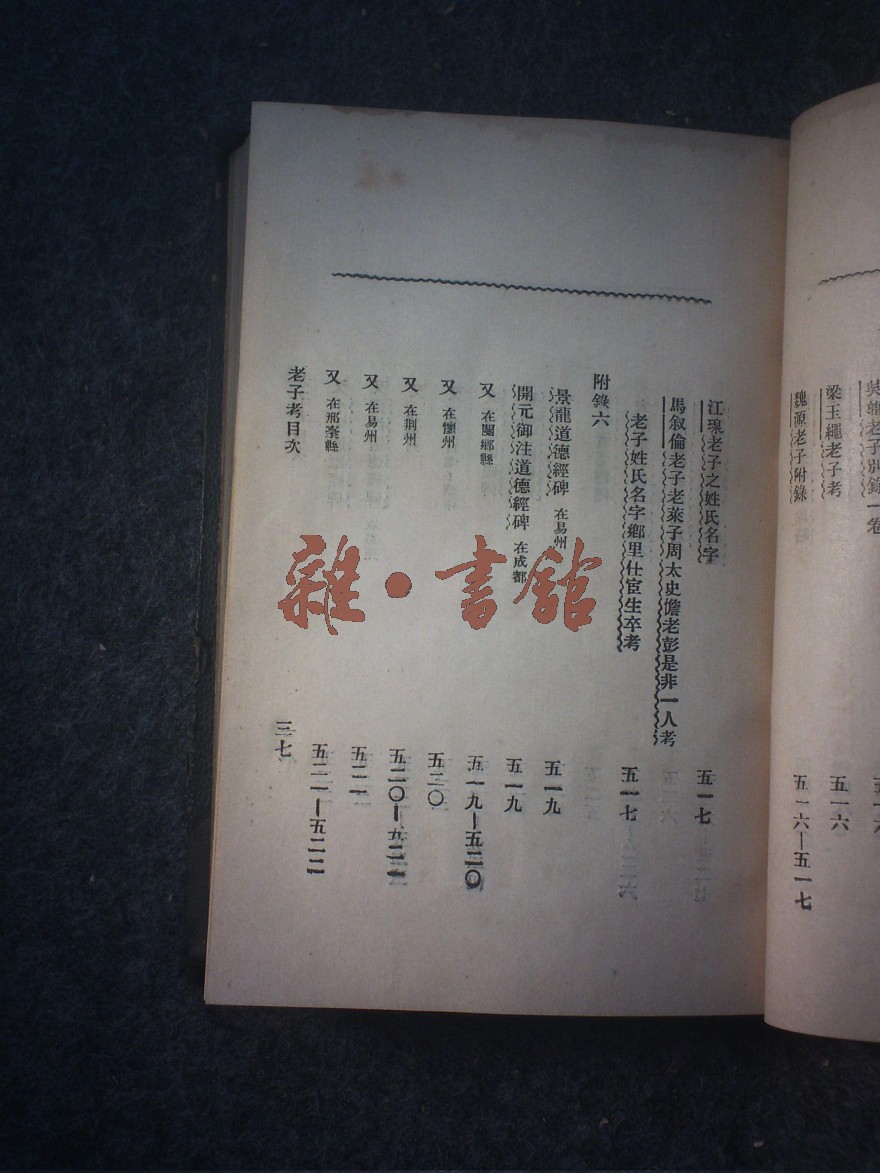 老子別錄一卷
梁玉繩老子考 五一六
魏源老子附錄 五一六—五一七
江瑔老子之姓氏名字 五一七
馬叙倫老子老萊子周太史儋老彭是非一人考
老子姓氏名字鄉里仕宦生卒考 五一七
附錄六
景龍道德經碑 在易州 五一九
開元御注道德經碑 在成都 五一九
又 在閿鄉縣 五一九—五二〇
又 在懷州 五二〇
又 在荆州 五二〇—五二一
又 在易州 五二一
又 在邢臺縣 五二一—五二二
老子考目次 三七
雜·書館